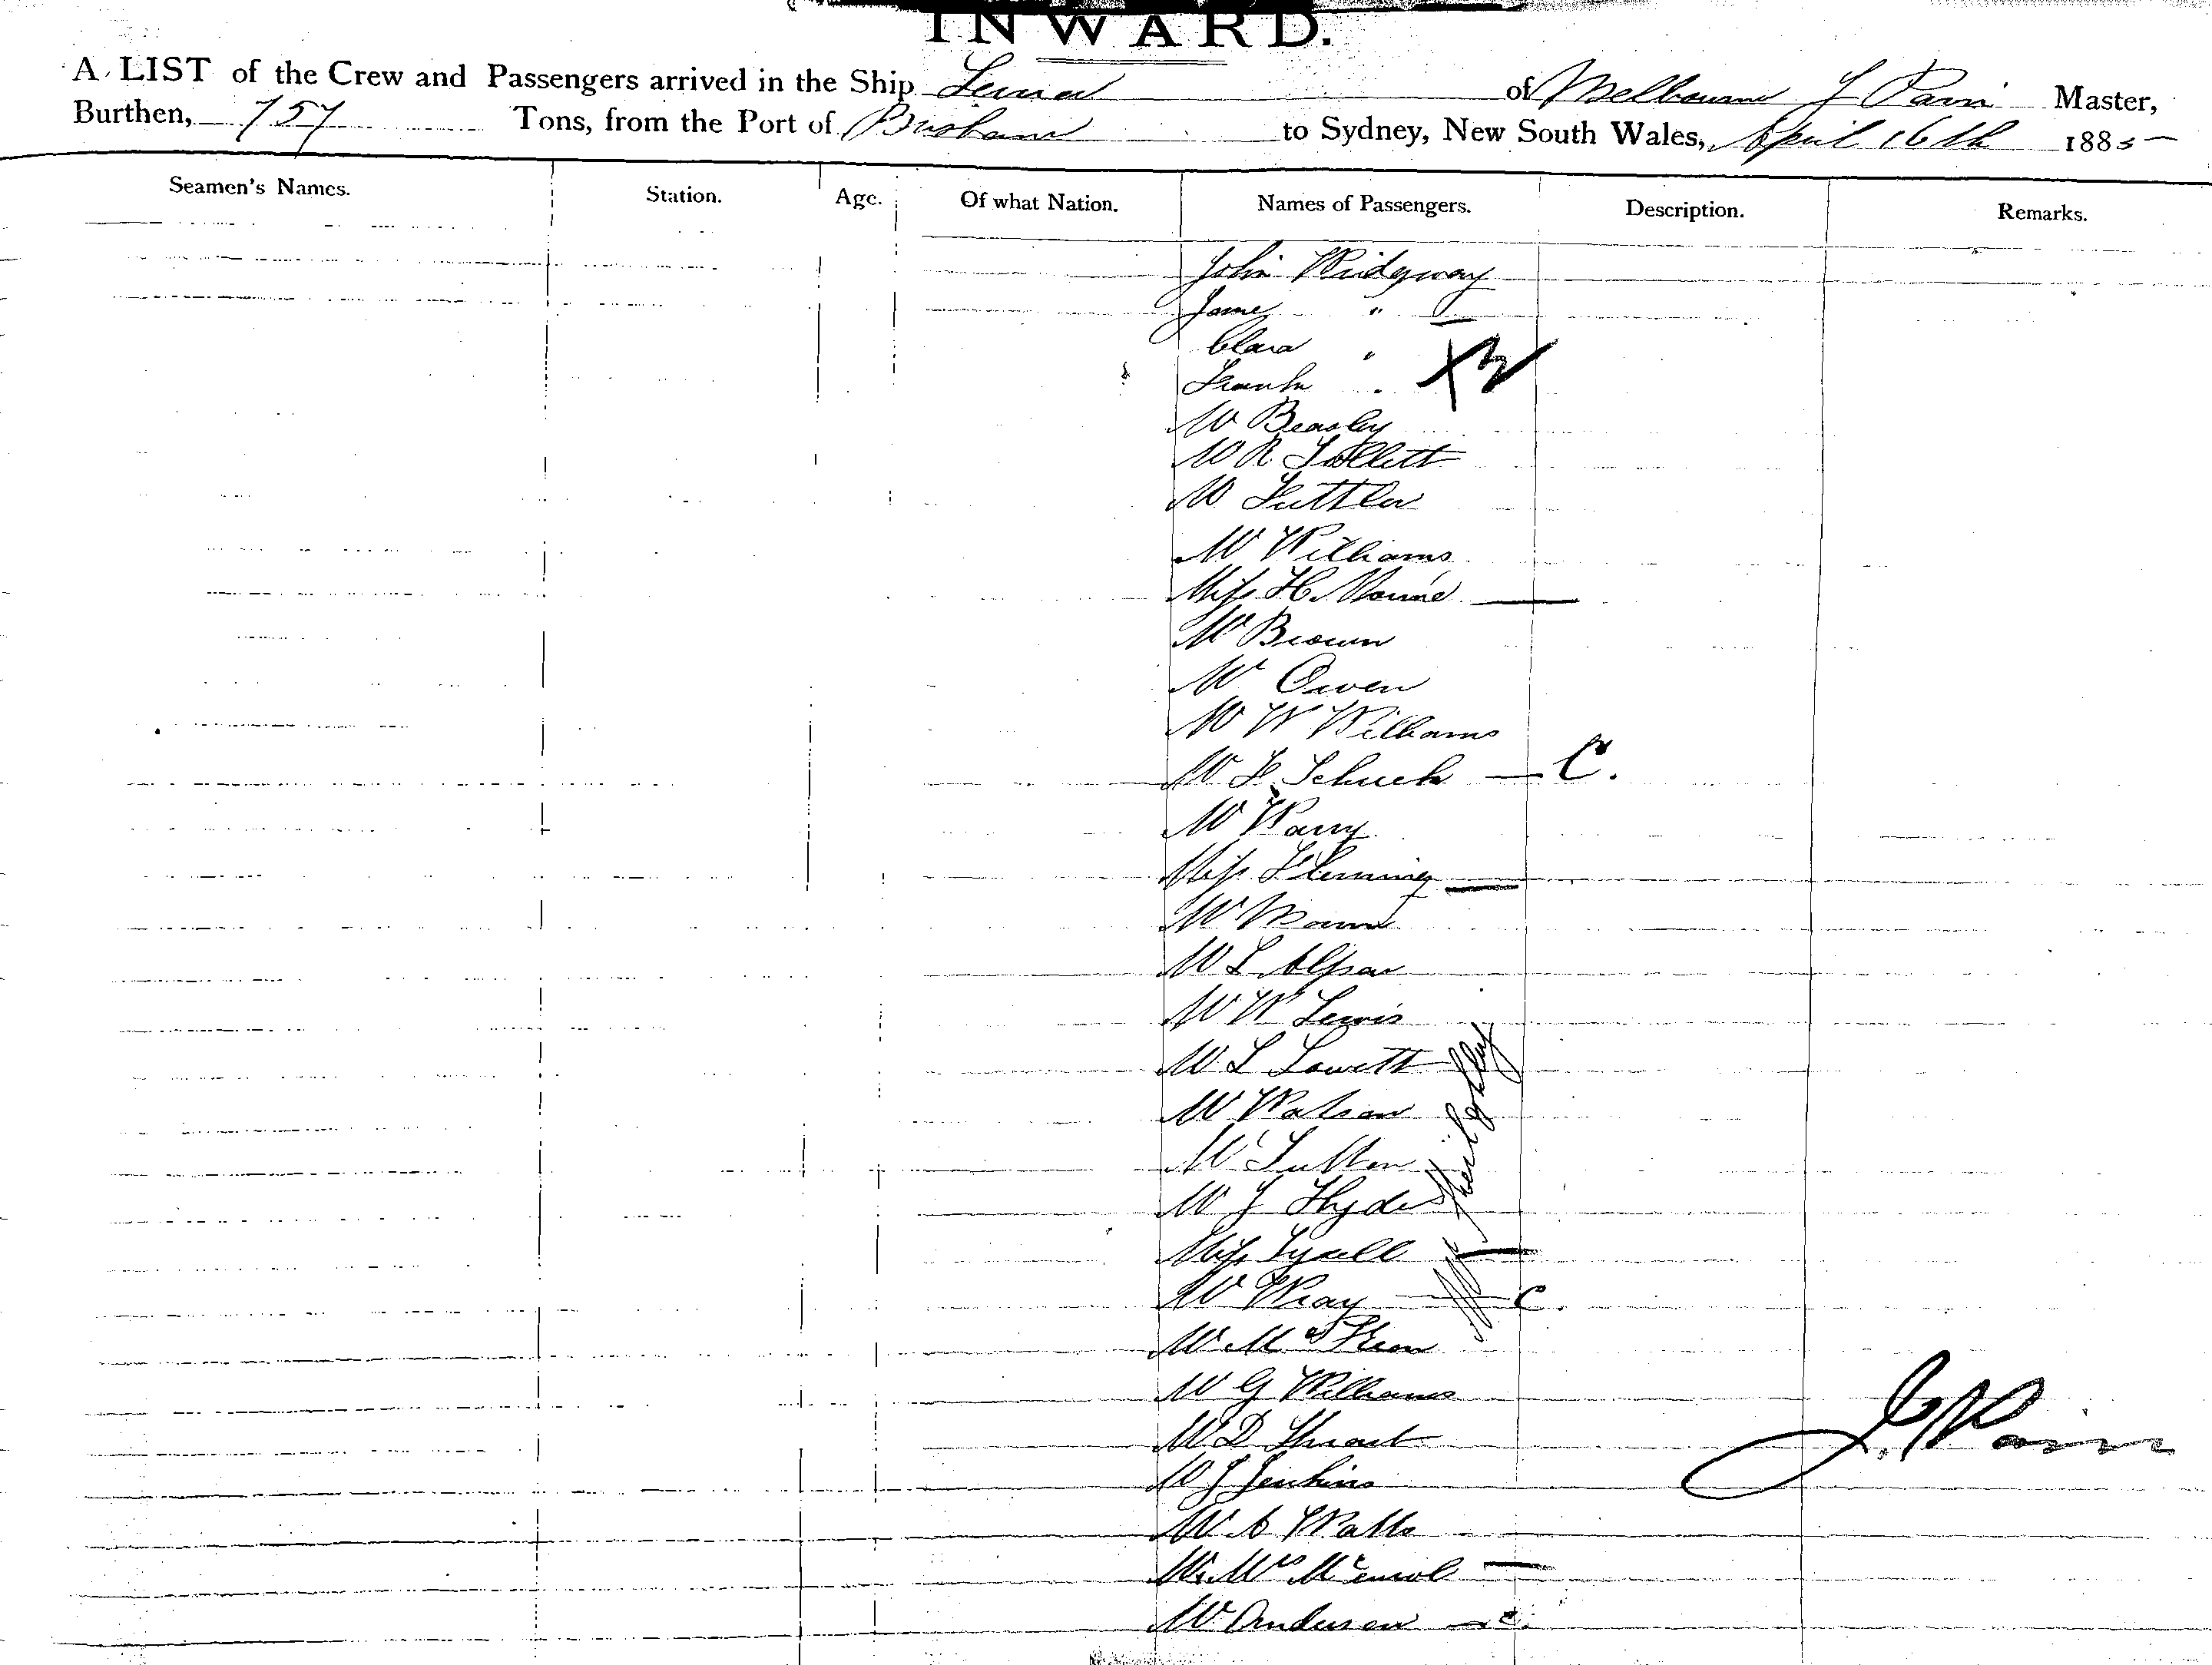 INWARD.
A LIST of the Crew and Passengers arrived in the Ship of Melbourne J Pain Master,
Burthen, 757 Tons, from the Port of Brisbane to Sydney, New South Wales, April 16th 1885
Seamen's Names. Station. Age. Of what Nation. Names of Passengers. Description. Remarks.
John Ridgway
James "
Clara "
Frank "
Mr Beasley
Mr R Follett
Mr Tuttler
Mr Williams
Miss H.
Mr Brown
Mr Owen
Mr W Williams
Mr F Schuch C.
Mr Parry
Miss Fleming
Mr Mann
Mr L
Mr W Lewis
Mr L Lowett
Mr Watson
Mr Sutton
Mr J Hyde
Miss Lyall
Mr Wray C.
Mr
Mr G Williams
Mr D Stuart
J. Pain
Mr J Jenkins
Mr A Watts
Mr Mrs
Mr Anderson c.